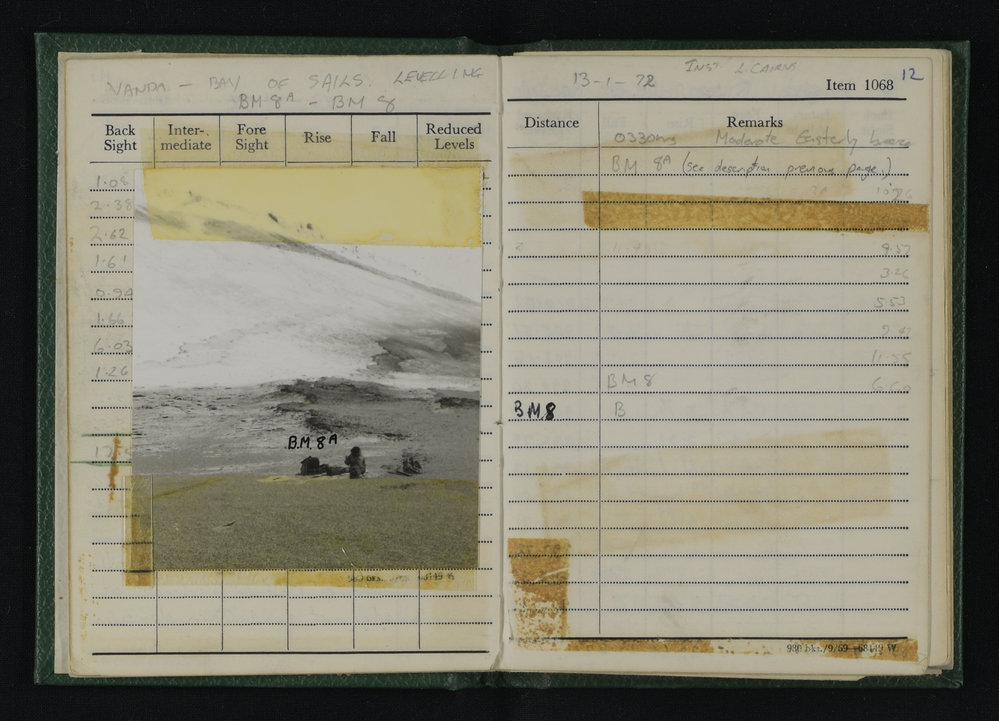 VANDA - BAY OF SAILS. LEVELLING
BM 8A - BM 8
Back Sight
Inter-mediate
Fore Sight
Rise
Fall
Reduced Levels
1.08
2.38
2.62
1.61
0.94
1.66
6.03
1.26
B.M. 8A
INST L. CAIRNS
13-1-72
Item 1068
12
Distance
Remarks
0330hrs Moderate Easterly breeze
BM 8A (see description previous page.)
9.53
3.26
5.53
BM 8
BM8 B
980 bks./9/69—68149 W